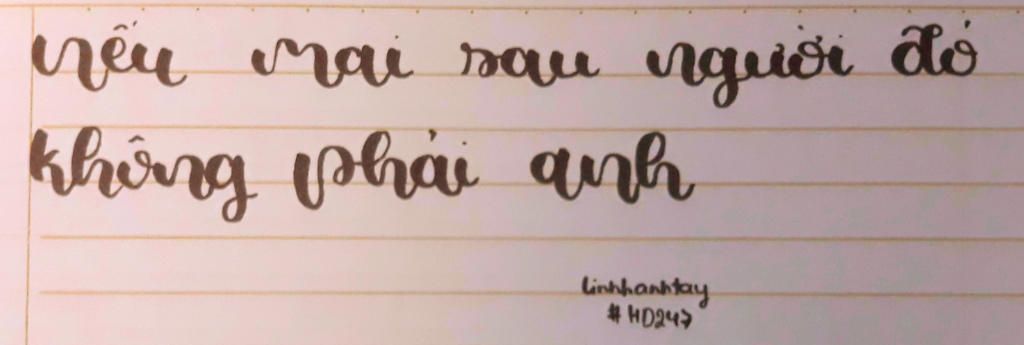 nếu mai sau người đó
không phải anh
linhhanhtay
#HD247